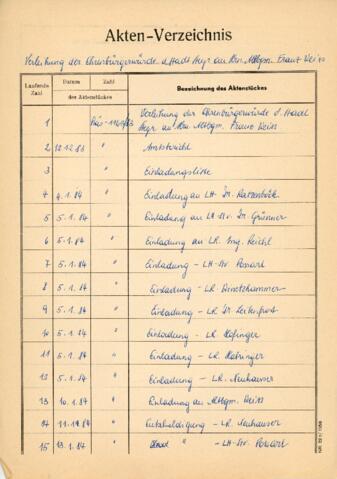 Akten-Verzeichnis
Verleihung der Ehrenbürgerwürde d. Stadt Steyr an Hrn. Altbgm. Franz Weiss
Laufende Zahl Datum Zahl Bezeichnung des Aktenstückes
des Aktenstückes
1 Präs- Verleihung der Ehrenbürgerwürde d. Stadt
Steyr an Hrn. Altbgm. Franz Weiss
2 12.12.83 " Amtsbericht
3 " Einladungsliste
4 4.1.84 " Einladung an LH. Dr. Ratzenböck
5 5.1.84 " Einladung an LH-Stv. Dr. Grünner
6 5.1.84 " Einladung an LR. Ing. Reichl
7 5.1.84 " Einladung - LH-Stv. Possart
8 5.1.84 " Einladung - LR. Winetzhammer
9 5.1.84 " Einladung - LR. Dr. Leibenfrost
10 5.1.84 " Einladung - LR. Hofinger
11 5.1.84 " Einladung - LR. Habringer
12 5.1.84 " Einladung - LR. Neuhauser
13 10.1.84 " Einladung an Altbgm. Weiss
14 11.1.84 " Entschuldigung - LR. Neuhauser
15 13.1.84 " " - LH-Stv. Possart